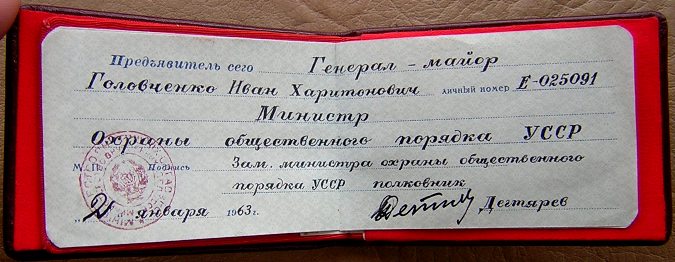 Предъявитель сего Генерал - майор
Головченко Иван Харитонович личный номер Е-025091
Министр
Охраны общественного порядка УССР
М. П. Подпись Зам. министра охраны общественного
порядка УССР полковник
„2" января 1963г. Дегтярев